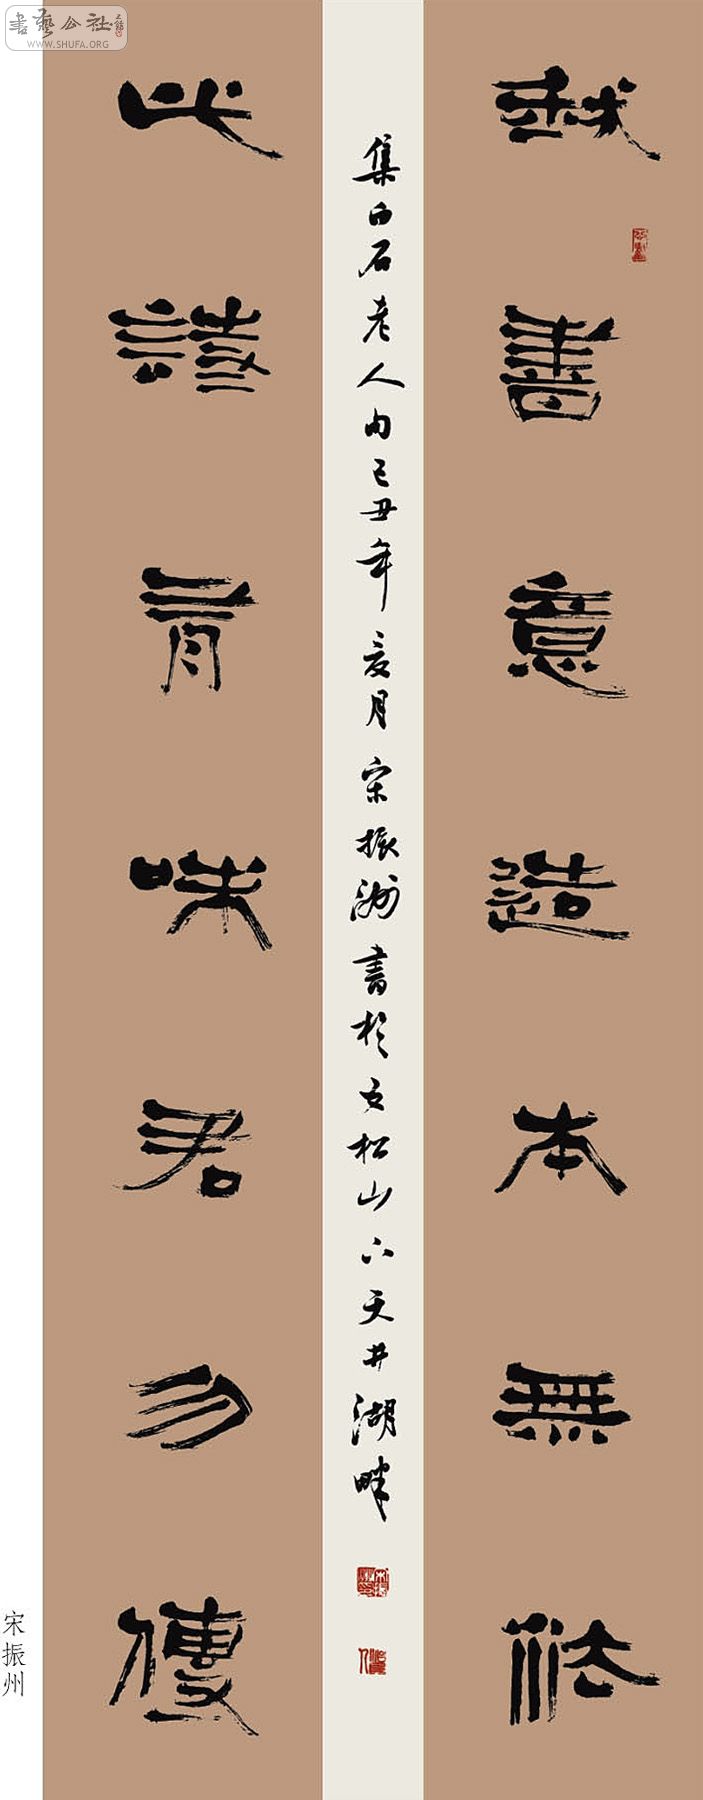 書藝公社
WWW.SHUFA.ORG
我書意造本無法
此詩有味君勿傳
集白石老人句己丑年夏月宋振洲書於五松山下天井湖畔
宋振州